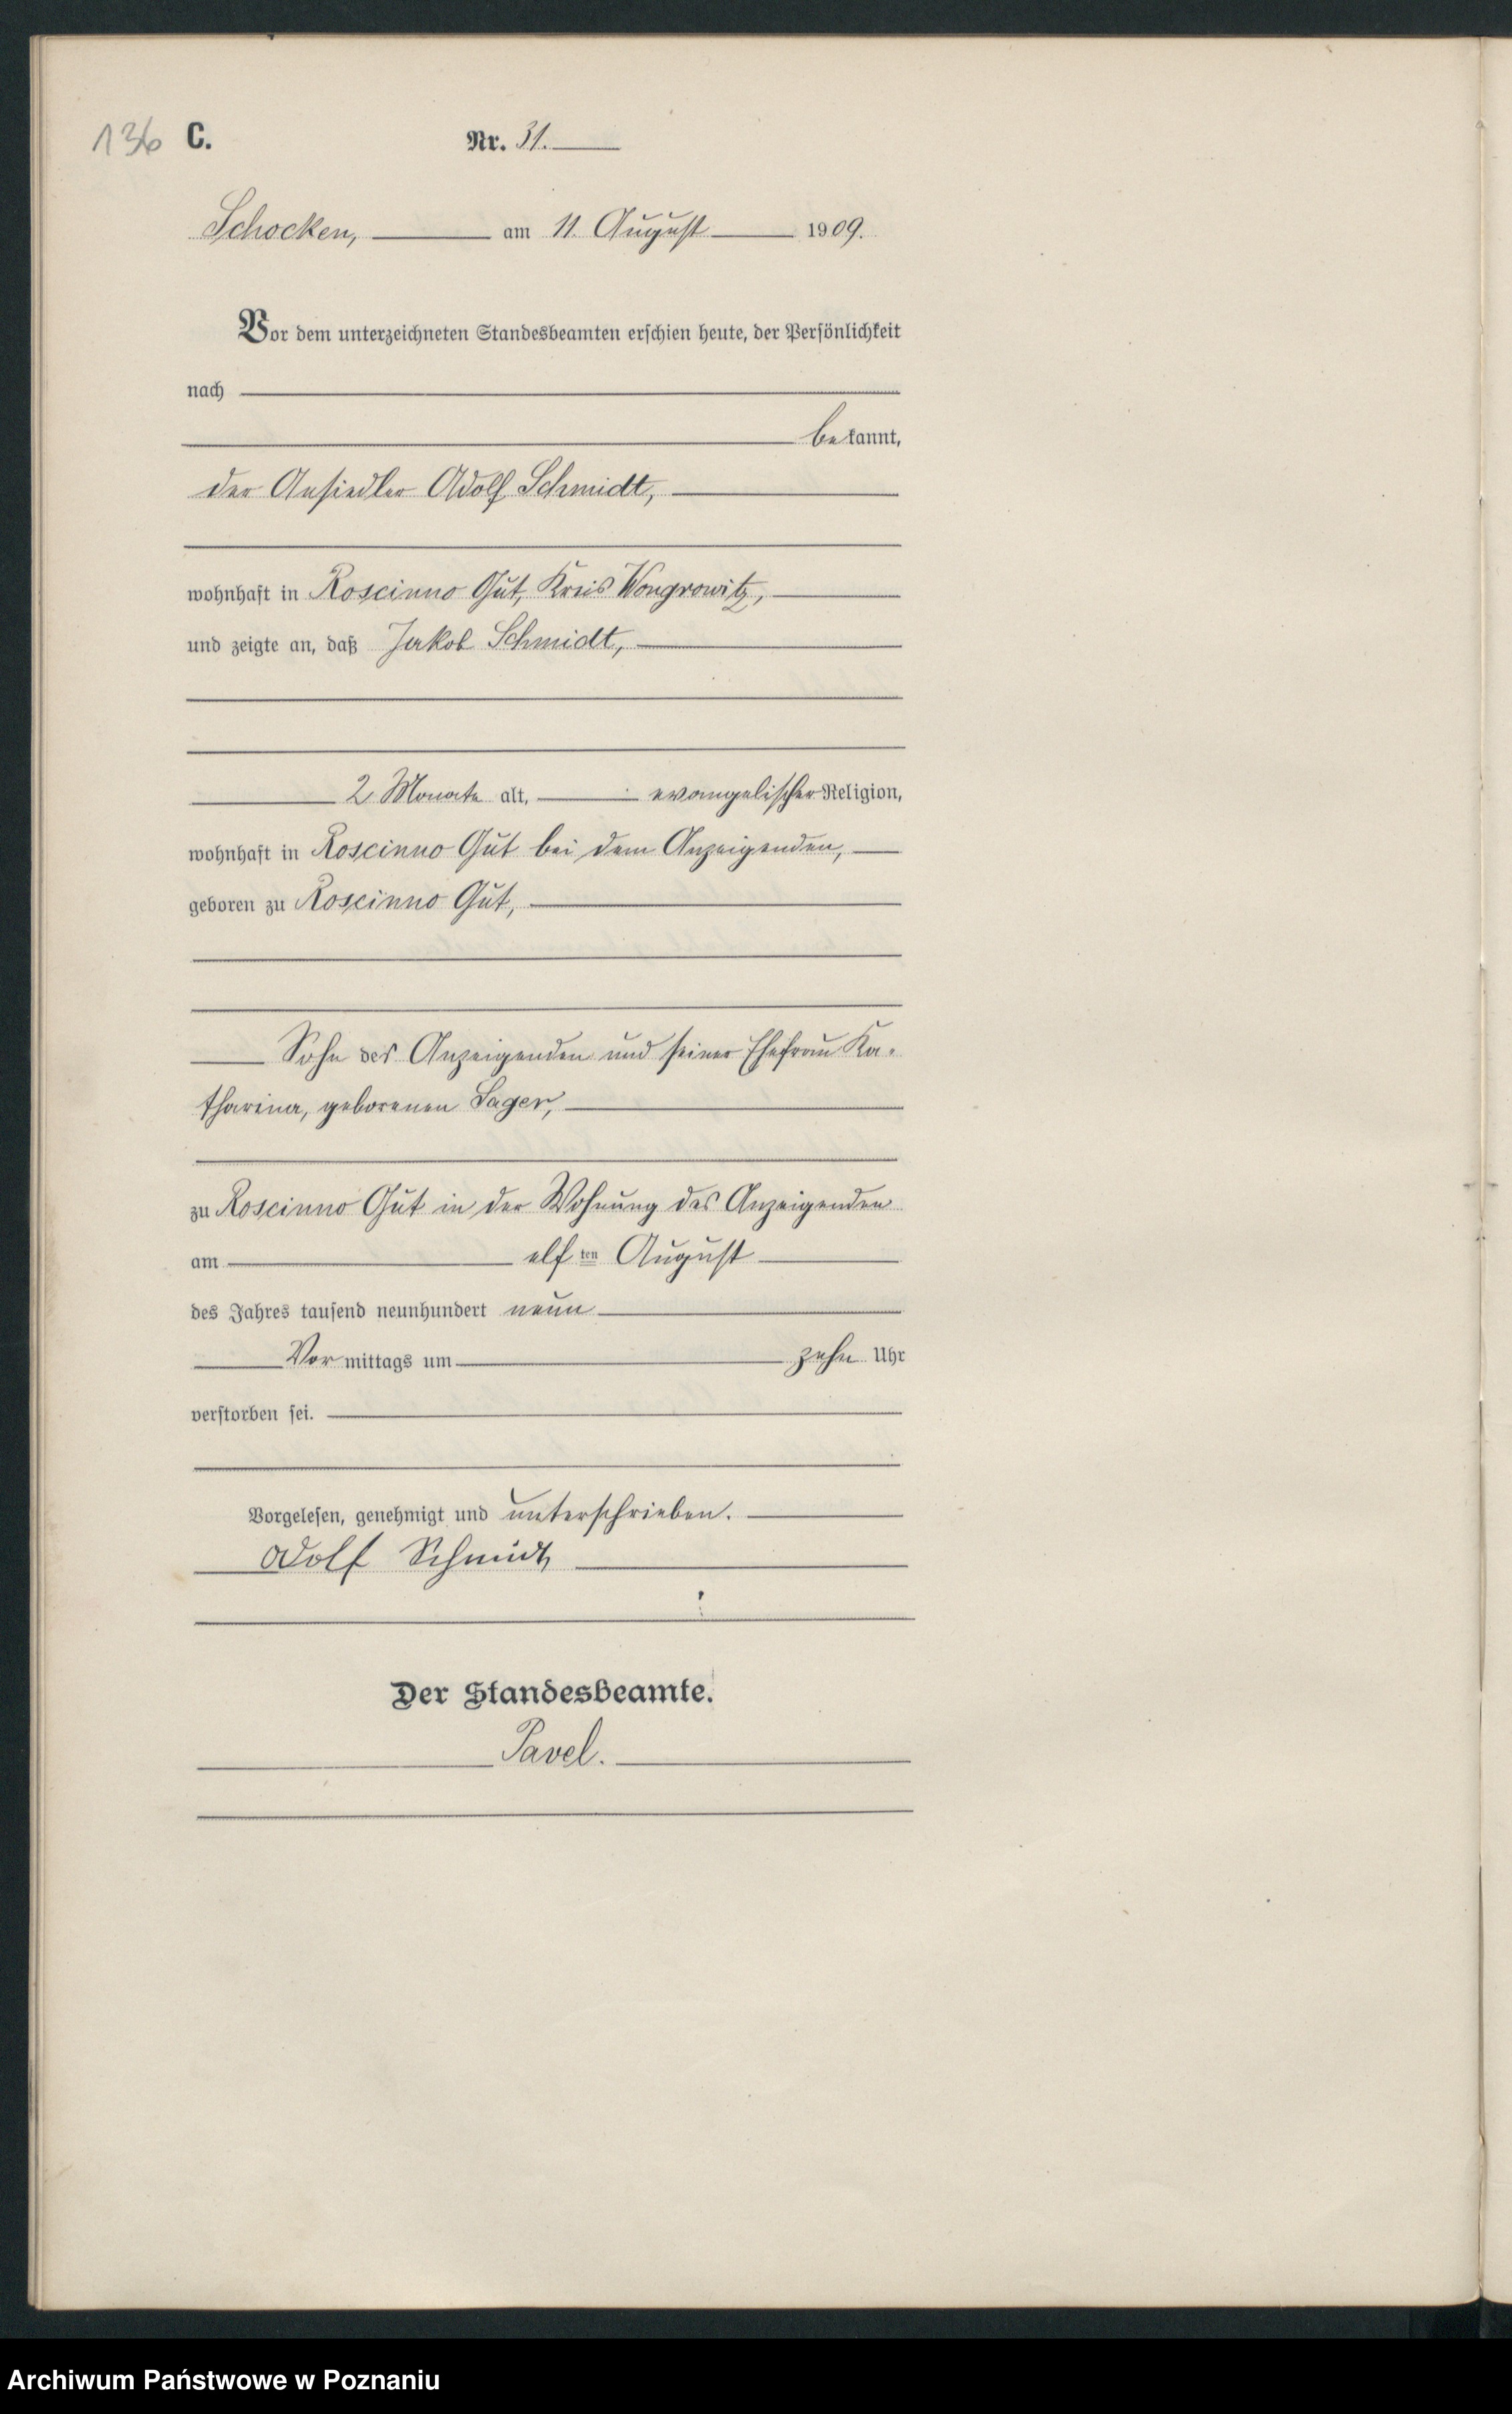 136 C. Nr. 31.
Schocken, am 11. August 1909.
Vor dem unterzeichneten Standesbeamten erschien heute, der Persönlichkeit
nach
bekannt,
der Ansiedler Adolf Schmidt,
wohnhaft in Roscinno Gut, Kreis Wongrowitz,
und zeigte an, daß Jakob Schmidt,
2 Monate alt, evangelischer Religion,
wohnhaft in Roscinno Gut bei dem Anzeigenden,
geboren zu Roscinno Gut,
Sohn des Anzeigenden und seiner Ehefrau Ka-
tharina, geborenen Sager,
zu Roscinno Gut in der Wohnung des Anzeigenden
am elften August
des Jahres tausend neunhundert neun
Vormittags um zehn Uhr
verstorben sei.
Vorgelesen, genehmigt und unterschrieben.
Adolf Schmidt
Der Standesbeamte.
Pavel.
Archiwum Państwowe w Poznaniu